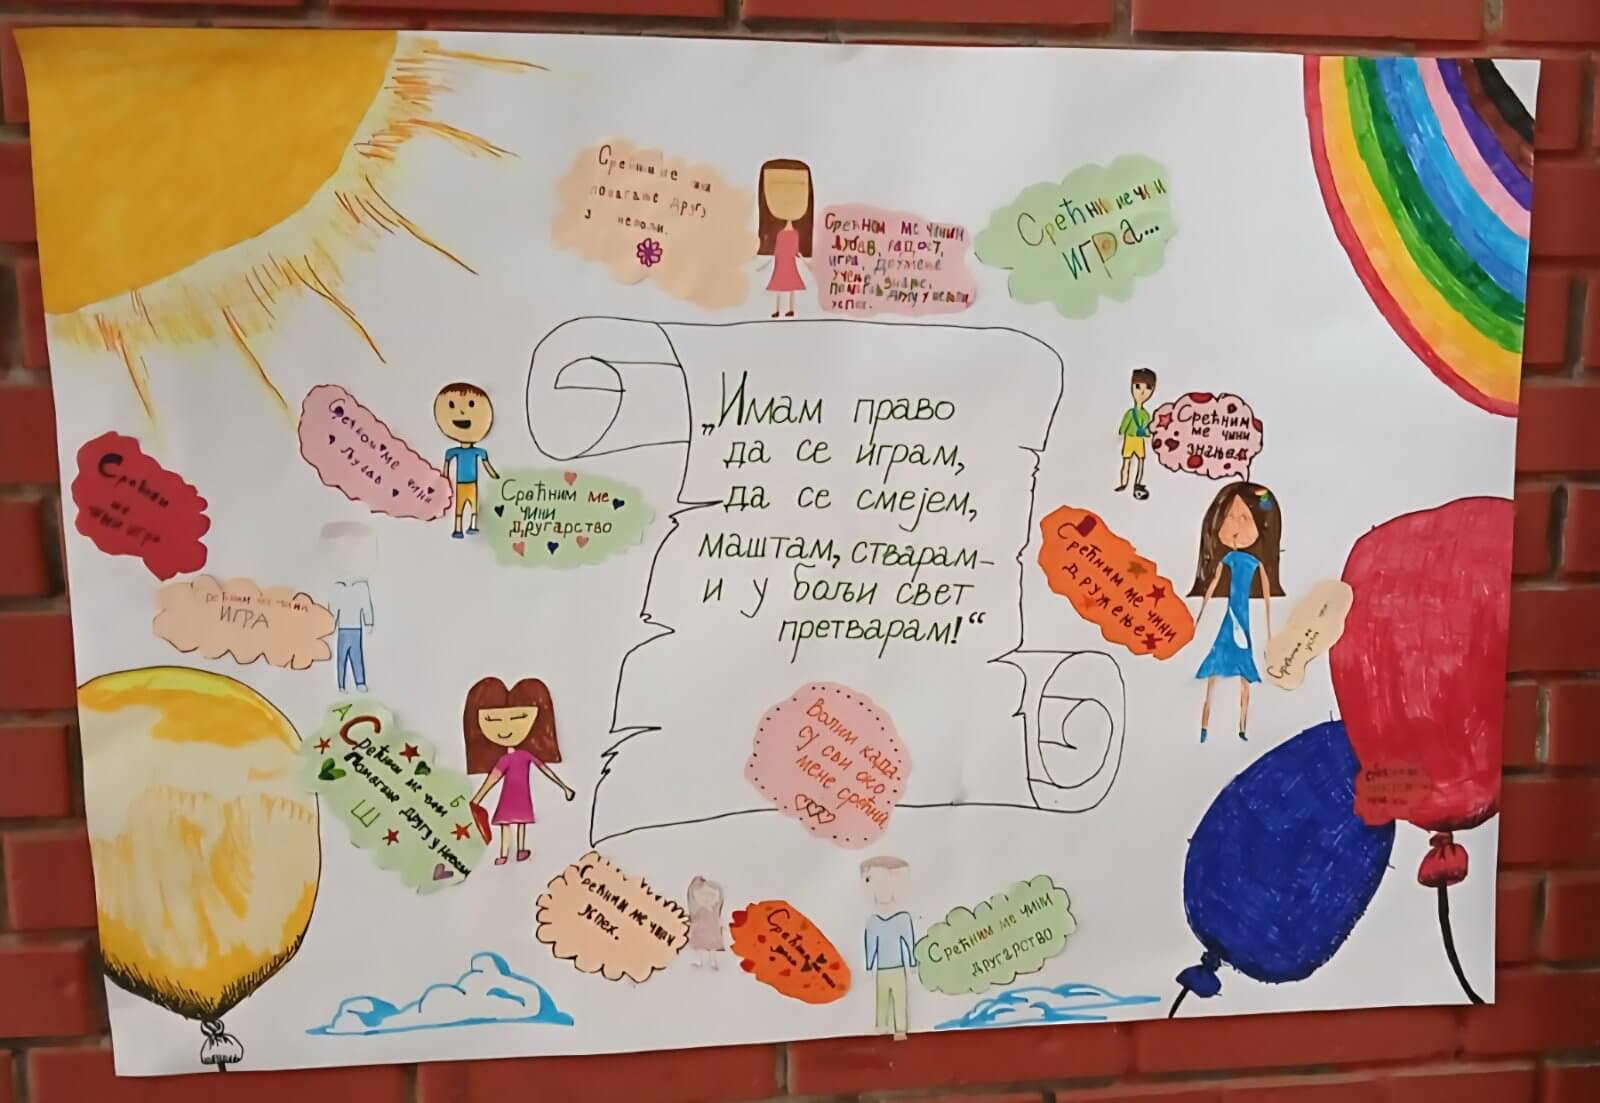 Срећним ме чини
помагање другу
у невољи.
Срећном ме чини
љубав, радост,
игра, дружење
учење, знање,
помагање другу у невољи
успех.
Срећним ме чини
игра...
„Имам право
да се играм,
да се смејем,
маштам, стварам–
и у бољи свет
претварам!“
Срећном ме
чини
љубав
Срећним ме
чини
другарство
Срећним
ме чини
знање
Срећним ме чини
дружење
ме
чини игра
ме чини
ИГРА
А
Срећним ме чини
Б
помагање другу у невољи
Ш
Волим када
су сви око
мене срећни
Срећним ме чини
успех.
Срећним ме чини
другарство